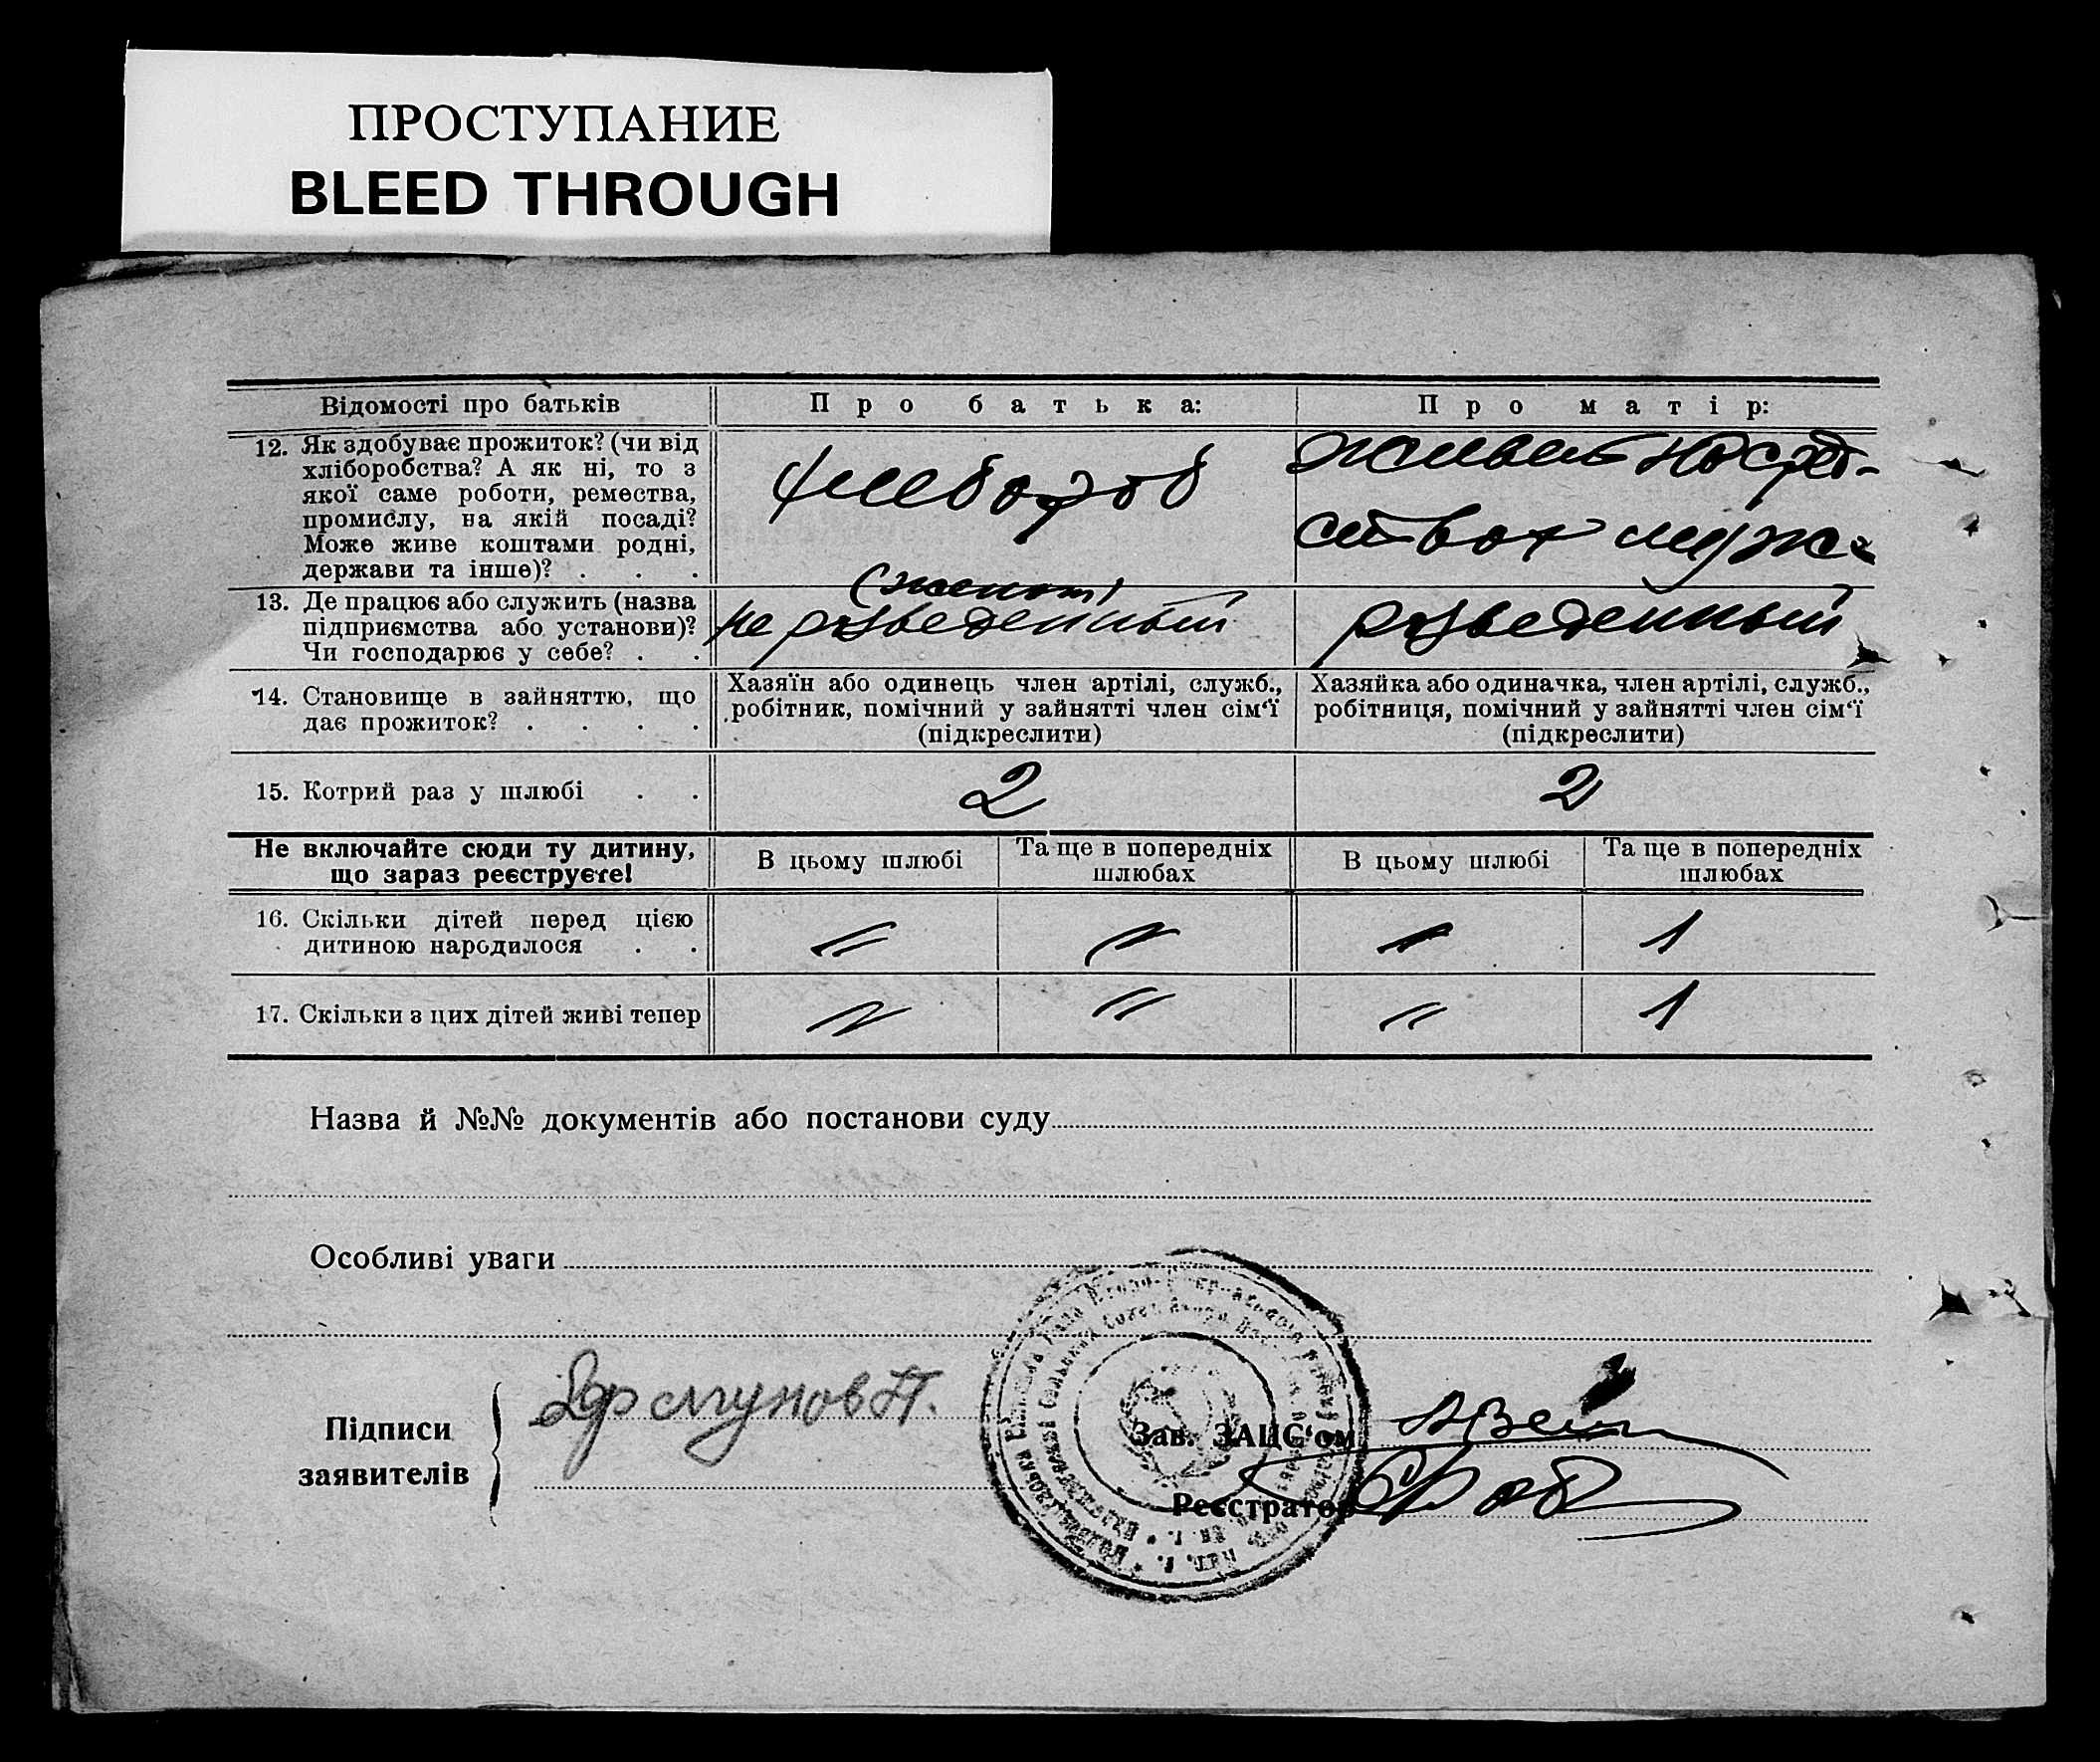 ПРОСТУПАНИЕ
BLEED THROUGH
Відомості про батьків
Про батька:
Про матір:
12. Як здобуває прожиток? (чи від
хліборобства? А як ні, то з
якої саме роботи, ремества,
промислу, на якій посаді?
Може живе коштами родні,
держави та інше)? . . .
хлебороб
живет на сред-
ствах мужа
13. Де працює або служить (назва
підприємства або установи)?
Чи господарює у себе? . .
(женат)
не разведенный
разведенный
14. Становище в зайняттю, що
дає прожиток? . . . .
Хазяїн або одинець член артілі, служб.,
робітник, помічний у зайнятті член сім'ї
(підкреслити)
Хазяйка або одиначка, член артілі, служб.,
робітниця, помічний у зайнятті член сім'ї
(підкреслити)
15. Котрий раз у шлюбі . .
2
2
Не включайте сюди ту дитину,
що зараз реєструєте!
В цьому шлюбі
Та ще в попередніх
шлюбах
В цьому шлюбі
Та ще в попередніх
шлюбах
16. Скільки дітей перед цією
дитиною народилося . .
1
17. Скільки з цих дітей живі тепер
1
Назва й №№ документів або постанови суду
Особливі уваги
Підписи
заявителів
Зав. ЗАЦС'ом
Реєстратор